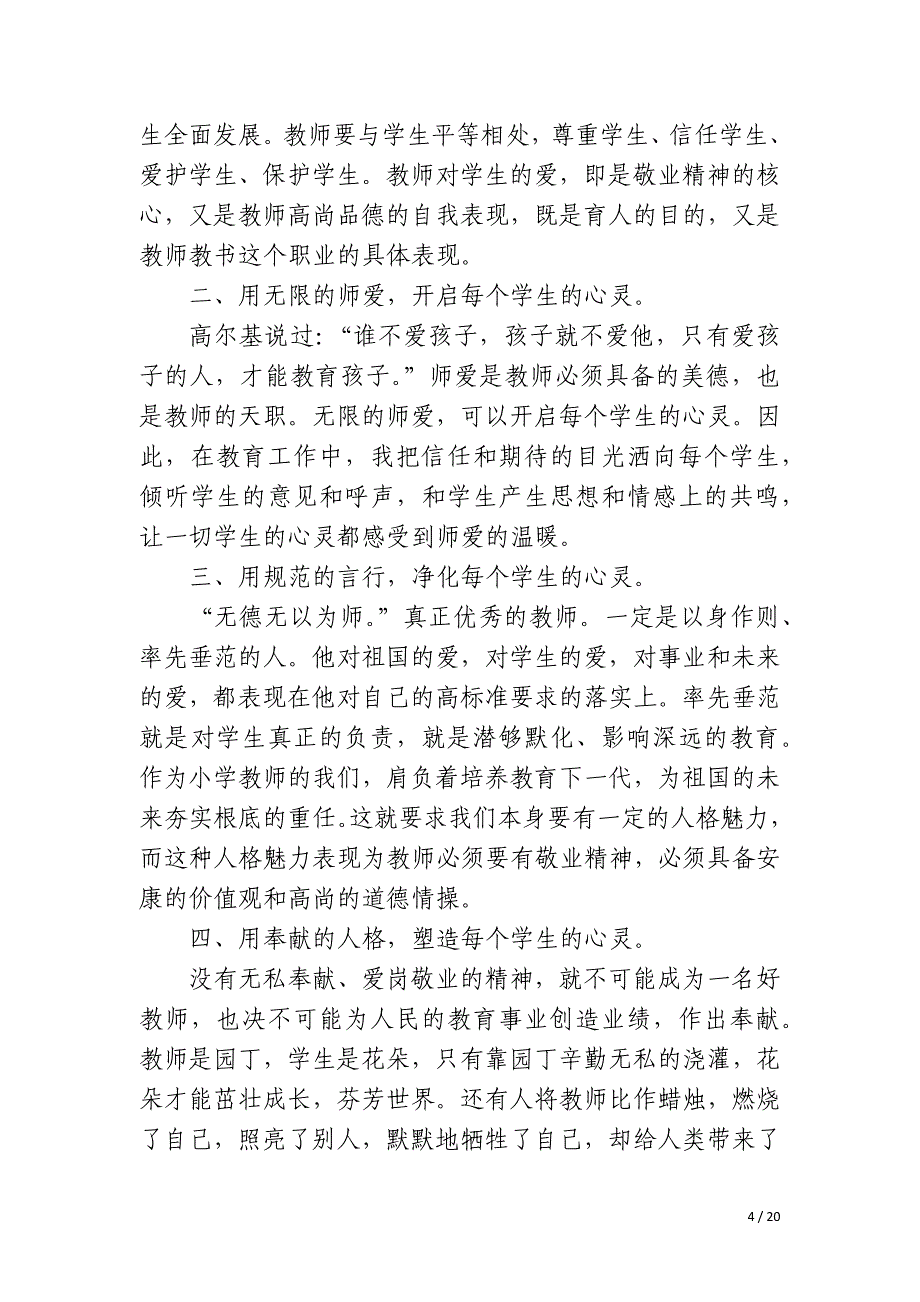 生全面发展。教师要与学生平等相处，尊重学生、信任学生、
爱护学生、保护学生。教师对学生的爱，即是敬业精神的核
心，又是教师高尚品德的自我表现，既是育人的目的，又是
教师教书这个职业的具体表现。
二、用无限的师爱，开启每个学生的心灵。
高尔基说过：“谁不爱孩子，孩子就不爱他，只有爱孩
子的人，才能教育孩子。”师爱是教师必须具备的美德，也
是教师的天职。无限的师爱，可以开启每个学生的心灵。因
此，在教育工作中，我把信任和期待的目光洒向每个学生，
倾听学生的意见和呼声，和学生产生思想和情感上的共鸣，
让一切学生的心灵都感受到师爱的温暖。
三、用规范的言行，净化每个学生的心灵。
“无德无以为师。”真正优秀的教师。一定是以身作则、
率先垂范的人。他对祖国的爱，对学生的爱，对事业和未来
的爱，都表现在他对自己的高标准要求的落实上。率先垂范
就是对学生真正的负责，就是潜够默化、影响深远的教育。
作为小学教师的我们，肩负着培养教育下一代，为祖国的未
来夯实根底的重任。这就要求我们本身要有一定的人格魅力，
而这种人格魅力表现为教师必须要有敬业精神，必须具备安
康的价值观和高尚的道德情操。
四、用奉献的人格，塑造每个学生的心灵。
没有无私奉献、爱岗敬业的精神，就不可能成为一名好
教师，也决不可能为人民的教育事业创造业绩，作出奉献。
教师是园丁，学生是花朵，只有靠园丁辛勤无私的浇灌，花
朵才能茁壮成长，芬芳世界。还有人将教师比作蜡烛，燃烧
了自己，照亮了别人，默默地牺牲了自己，却给人类带来了
4 / 20